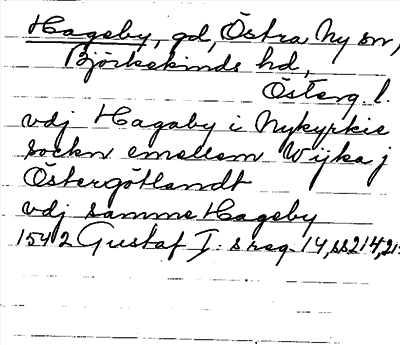 Hageby, gd, Östra Ny sn,
Björkekinds hd,
Österg. l.
vdj Hagaby i Nykyrkie
sockn emellem Wijka j
Östergötlandt
vdj samme Hageby
1542 Gustaf I:s reg. 14, ss 214, 21